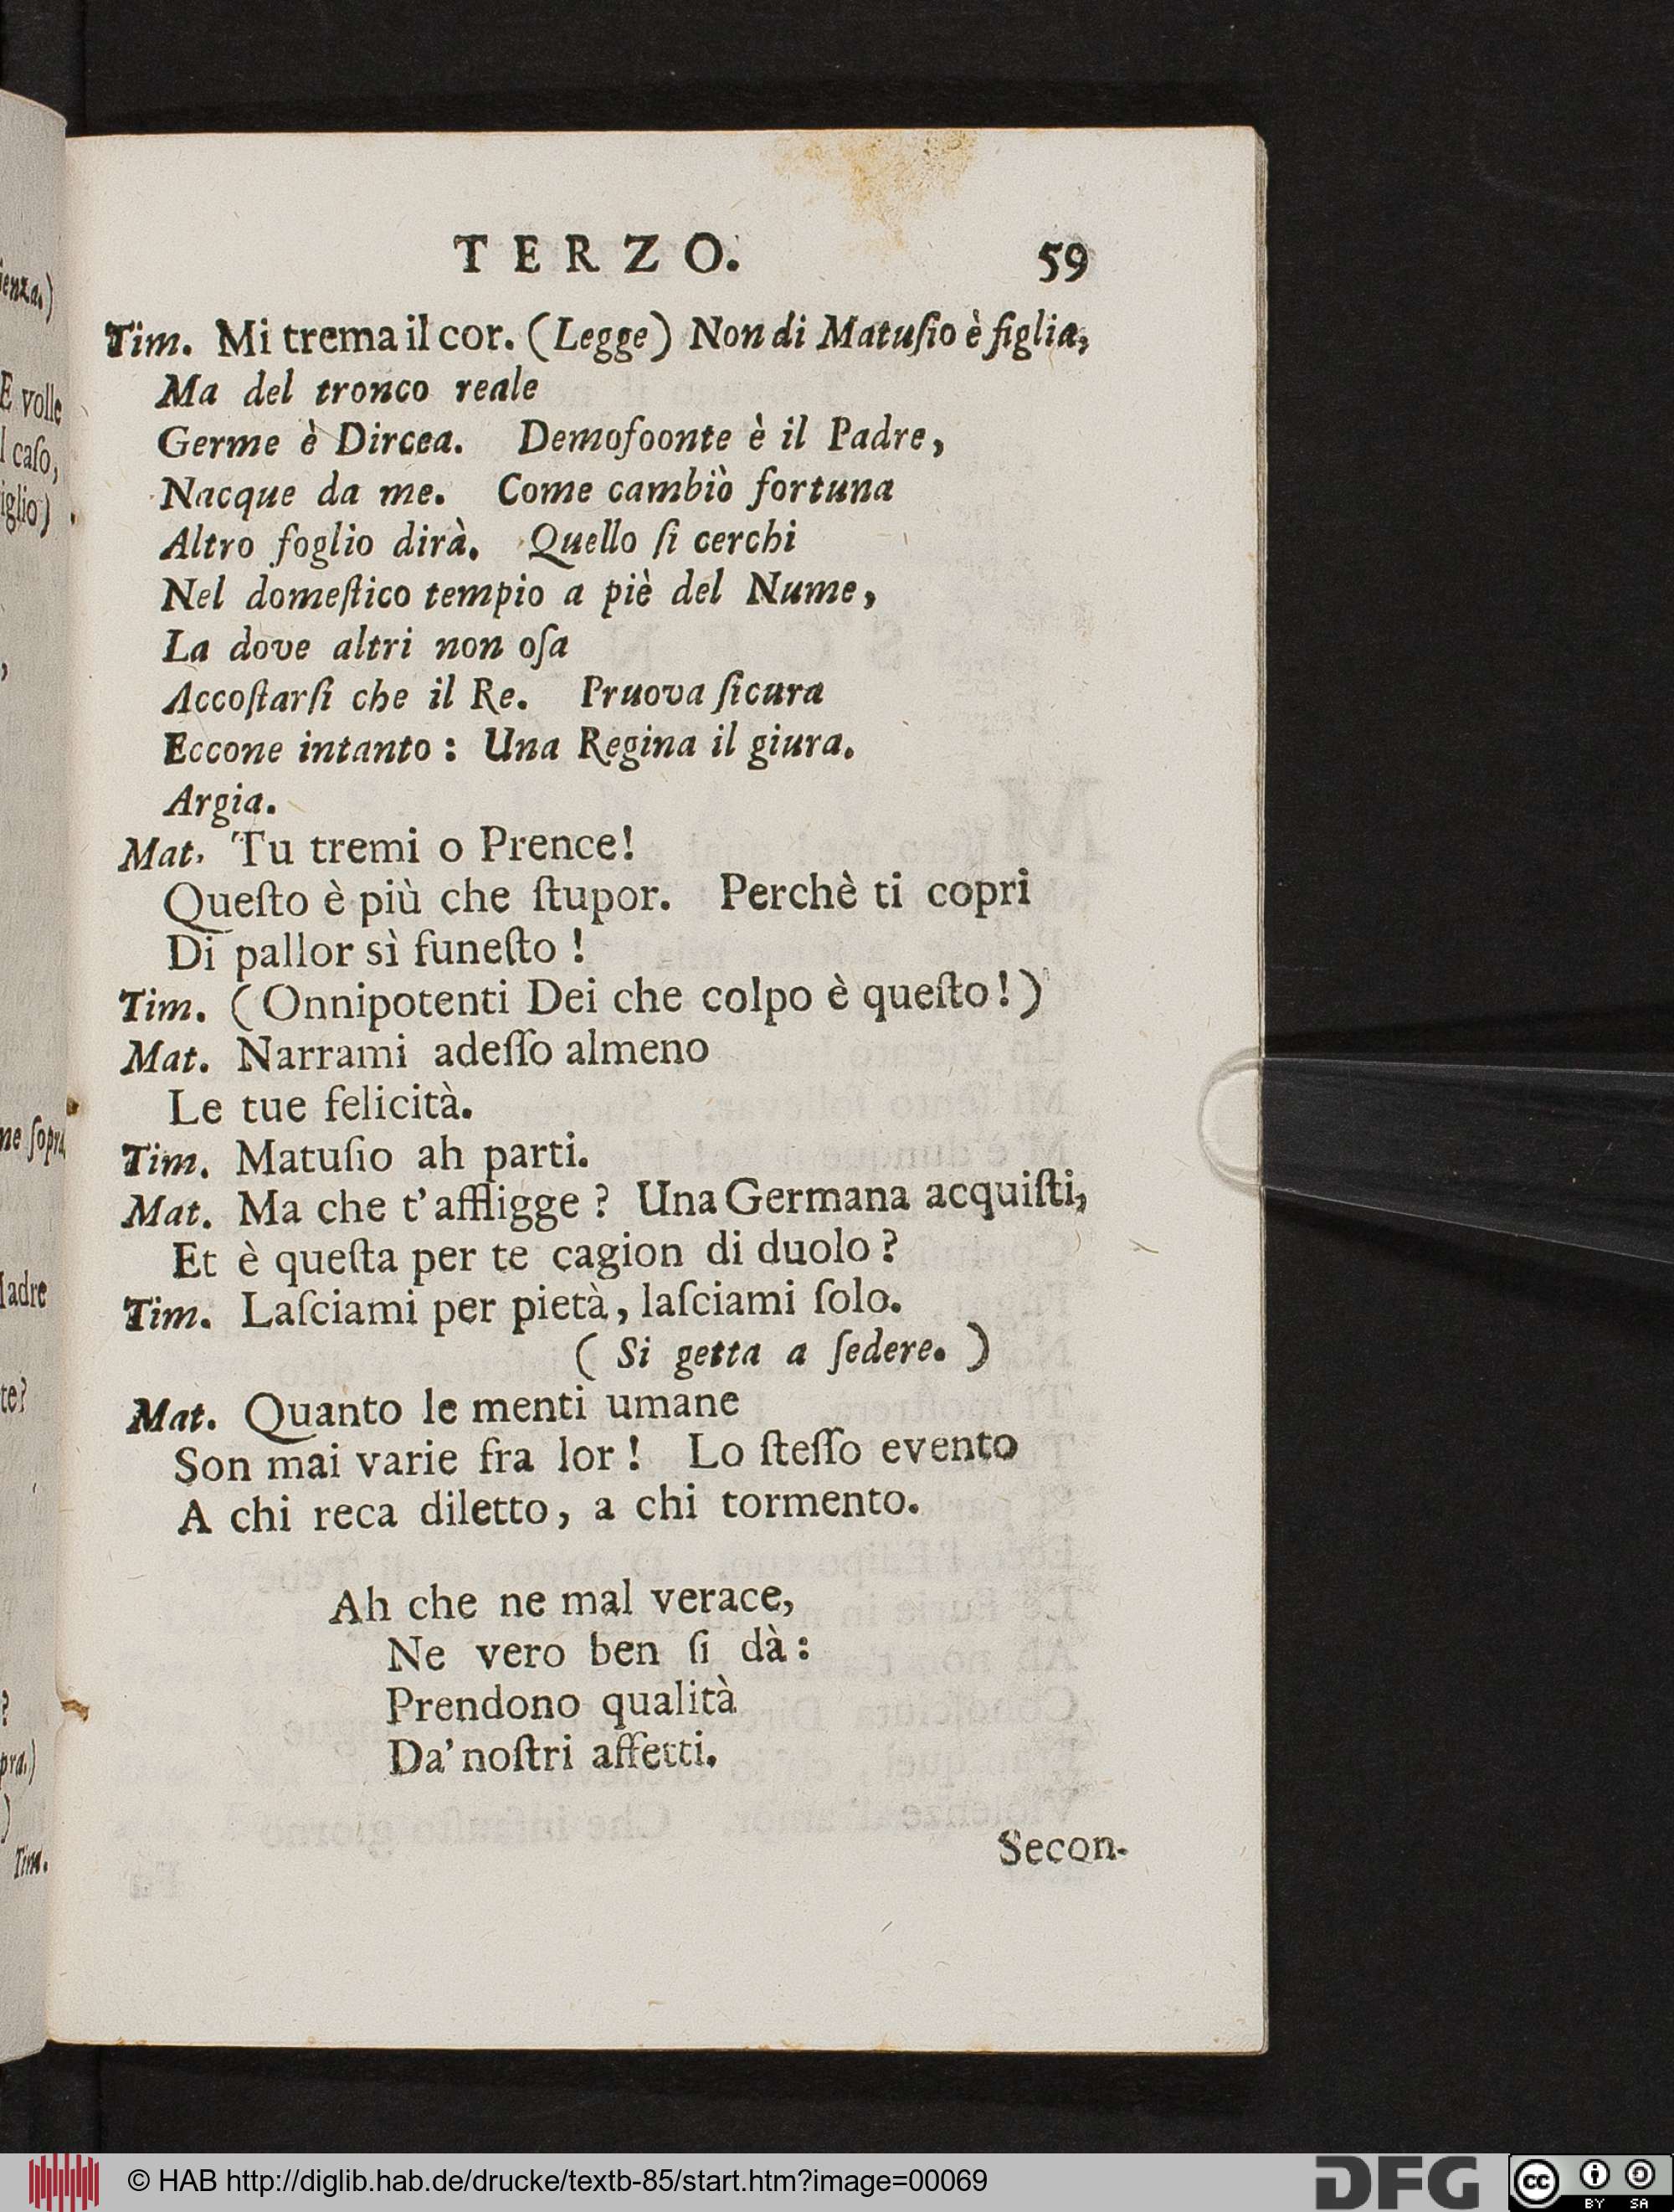 TERZO. 59
Tim. Mi trema il cor. (Legge) Non di Matuſio è figlia,
Ma del tronco reale
Germe è Dircea. Demofoonte è il Padre,
Nacque da me. Come cambiò fortuna
Altro foglio dirà. Quello ſi cerchi
Nel domeſtico tempio a piè del Nume,
La dove altri non oſa
Accoſtarſi che il Re. Pruova ſicura
Eccone intanto: Una Regina il giura.
Argia.
Mat. Tu tremi o Prence!
Queſto è più che ſtupor. Perchè ti copri
Di pallor sì funeſto!
Tim. (Onnipotenti Dei che colpo è queſto!)
Mat. Narrami adeſſo almeno
Le tue felicità.
Tim. Matuſio ah parti.
Mat. Ma che t'affligge? Una Germana acquiſti,
Et è queſta per te cagion di duolo?
Tim. Laſciami per pietà, laſciami ſolo.
(Si getta a ſedere.)
Mat. Quanto le menti umane
Son mai varie fra lor! Lo ſteſſo evento
A chi reca diletto, a chi tormento.
Ah che ne mal verace,
Ne vero ben ſi dà:
Prendono qualità
Da'noſtri affetti.
Secon-
ienza.)
E volle
l caſo,
iglio)
,
ne ſopra
Madre
te?
?
pra.)
)
Tim.
© HAB http://diglib.hab.de/drucke/textb-85/start.htm?image=00069
DFG
cc
BY SA